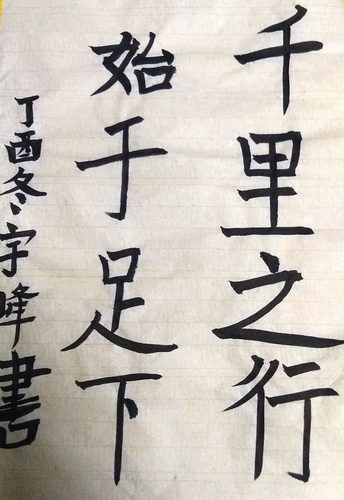 千里之行
始于足下
丁酉冬宇峰書